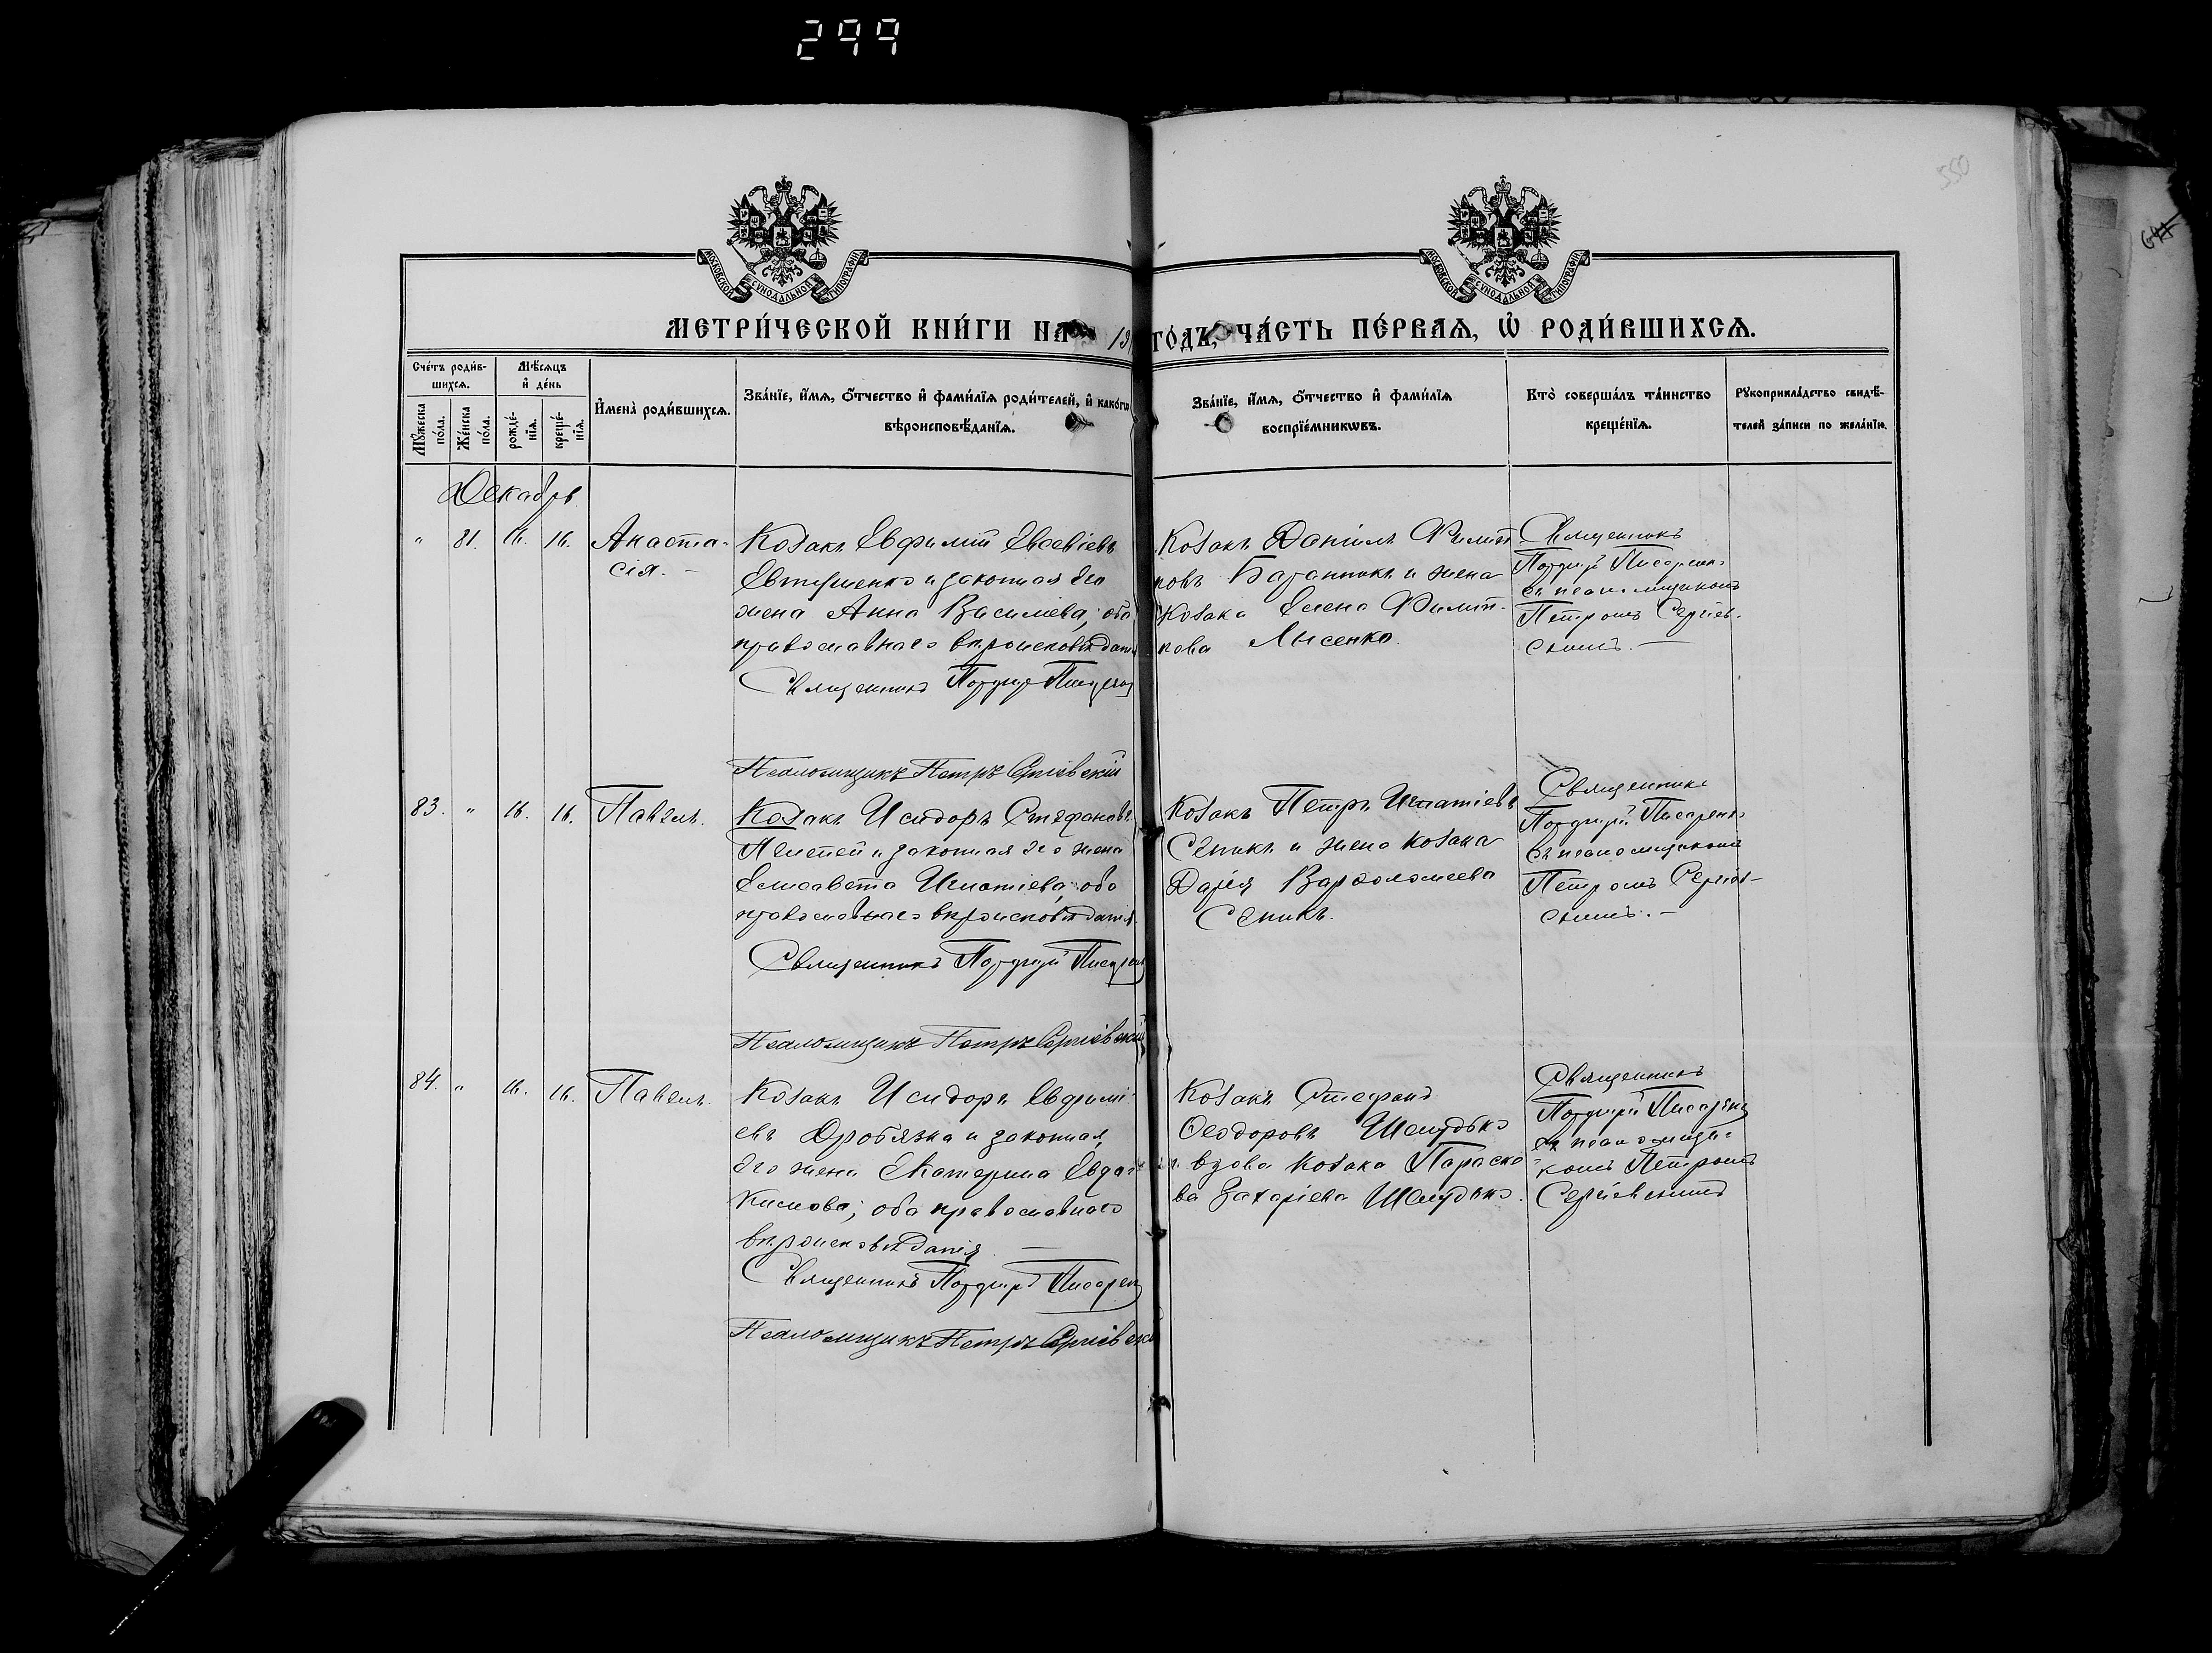 299
550
МОСКОВСКОЙ СѴНОДАЛЬНОЙ ТИПОГРАФІИ
МОСКОВСКОЙ СѴНОДАЛЬНОЙ ТИПОГРАФІИ
МЕТРИ́ЧЕСКОЙ КНИ́ГИ НА 19
ГО́ДЪ, ЧА́СТЬ ПЕ́РВАѦ, Ѽ РОДИ́ВШИХСѦ.
Сче́тъ роди́в-
шихсѧ.
Мѣ́сѧцъ
и҆ де́нь
Мꙋ́жеска по́ла.
Же́нска по́ла.
рожде́-
нїѧ.
креще́-
нїѧ.
И҆мена̀ роди́вшихсѧ.
Зва́нїе, и҆́мѧ, ѻ҆́тчество и҆ фами́лїѧ роди́телей, и҆ како́гѡ
вѣроисповѣ́данїѧ.
Зва́нїе, и҆́мѧ, ѻ҆́тчество и҆ фами́лїѧ
воспрїе́мникѡвъ.
Кто̀ соверша́лъ та́инство
креще́нїѧ.
Рꙋкоприкла́дство свидѣ́-
телей за́писи по жела́нїю.
Декабрь
" 81. 16. 16. Анаста-
сія. -
Козакъ Евфимій Евсевіевъ
Евтушенко и законная его
жена Анна Василіева; оба
православнаго вѣроисповѣданія
Священникъ Порфирій Писаренко
Псаломщикъ Петръ Сергіевскій
Козакъ Даніилъ Филип-
повъ и жена
Козака Елена Филип-
пова Лысенко.
Священникъ
Порфирій Писаренко
съ псаломщикомъ
Петромъ Сергіев-
скимъ. —
83. " 16. 16. Павелъ.
Козакъ Исидоръ Стефановъ
и законная его жена
Елисавета Игнатіева; оба
православнаго вѣроисповѣданія.
Священникъ Порфирій Писаренко
Псаломщикъ Петръ Сергіевскій
Козакъ Петръ Игнатіевъ
Сепикъ и жена козака
Дарія Варѳоломеева
Сепикъ.
Священникъ
Порфирій Писаренко
съ псаломщикомъ
Петромъ Сергіев-
скимъ. —
84. " 16. 16. Павелъ.
Козакъ Исидоръ Евфимі-
евъ Дробязка и законная
его жена Екатерина Евдо-
кимова; оба православнаго
вѣроисповѣданія. —
Священникъ Порфирій Писаренко
Псаломщикъ Петръ Сергіевскій
Козакъ Стефанъ
Ѳеодоровъ Шелудько
и вдова козака Параске-
ва Захаріева Шелудько.
Священникъ
Порфирій Писаренко
съ псаломщи-
комъ Петромъ
Сергіевскимъ